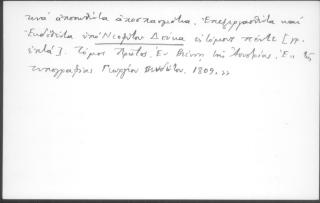 τινὰ ἀποσπασμάτια. Ἐπεξεργασθέντα καὶ
Ἐκδοθέντα ὑπὸ Νεοφύτου Δούκα εἰς τόμους πέντε [γρ.
ἑπτά]. Τόμος Πρῶτος. Ἐν Βιέννῃ τῆς Αουστρίας. Ἐκ τῆς
τυπογραφίας Γεωργίου Βενδότου. 1809.»